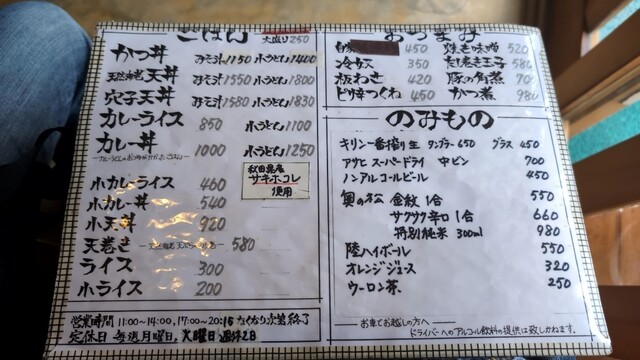 ごはん 大盛り250
かつ丼 みそ汁1150 小うどん1400
天然海老天丼 みそ汁1550 小うどん1800
穴子天丼 みそ汁1580 小うどん1830
カレーライス 850 小うどん1100
カレー丼 1000 小うどん1250
秋田県産
サキホコレ
使用
小カレーライス 460
小カレー丼 540
小天丼 920
天巻き 580
ライス 300
小ライス 200
営業時間 11:00~14:00, 17:00~20:15 なくなり次第終了
定休日 毎週月曜日, 火曜日
おつまみ
自家 450 焼き味噌 520
冷奴 350 だし巻き玉子 580
板わさ 420 豚の角煮
ピリ辛つくね 450 かつ煮
のみもの
キリン一番搾り生 タンブラー650 グラス450
アサヒスーパードライ 中ビン 700
ノンアルコールビール 450
奥の松 金紋 1合 550
サクサク辛口 1合 660
特別純米 300ml 980
陸ハイボール 550
オレンジジュース 320
ウーロン茶. 250
お車でお越しの方へ
ドライバーへのアルコール飲料の提供は致しかねます.